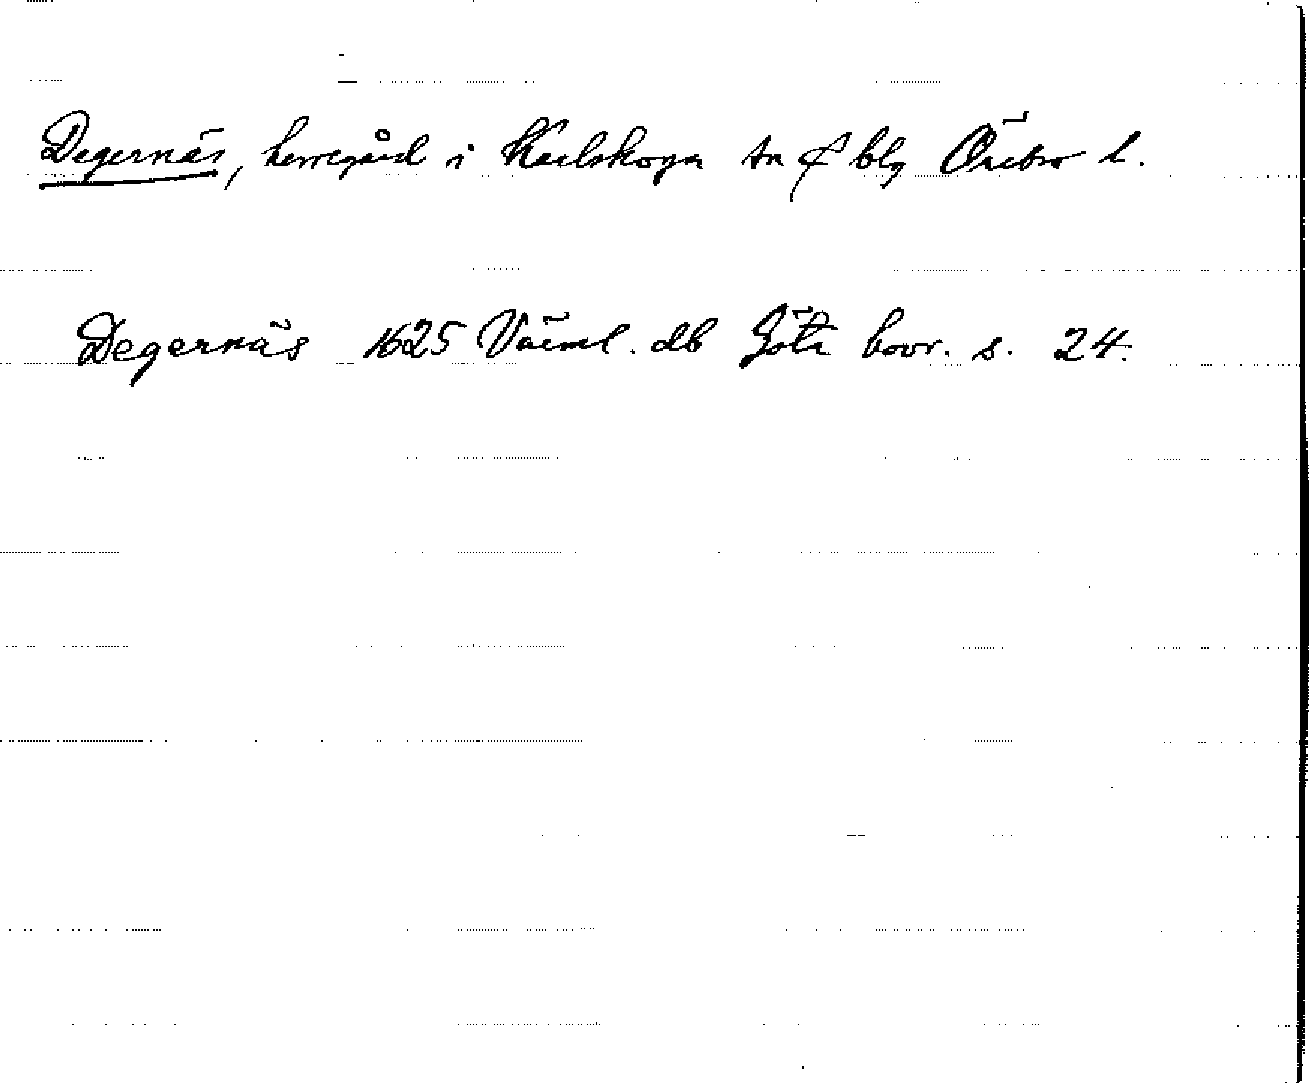 Degernäs, herregård i Karlskoga sn & blg Örebro l.
Degernäs 1625 Värml. db Göta hovr. s. 24.